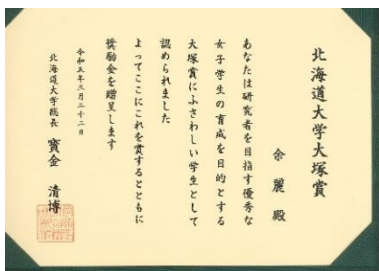 北海道大学大塚賞
余麗殿
あなたは研究者を目指す優秀な
女子学生の育成を目的とする
大塚賞にふさわしい学生として
認められました
よってここにこれを賞するとともに
奨励金を贈呈します
令和五年三月二十二日
北海道大学総長 寳金清博